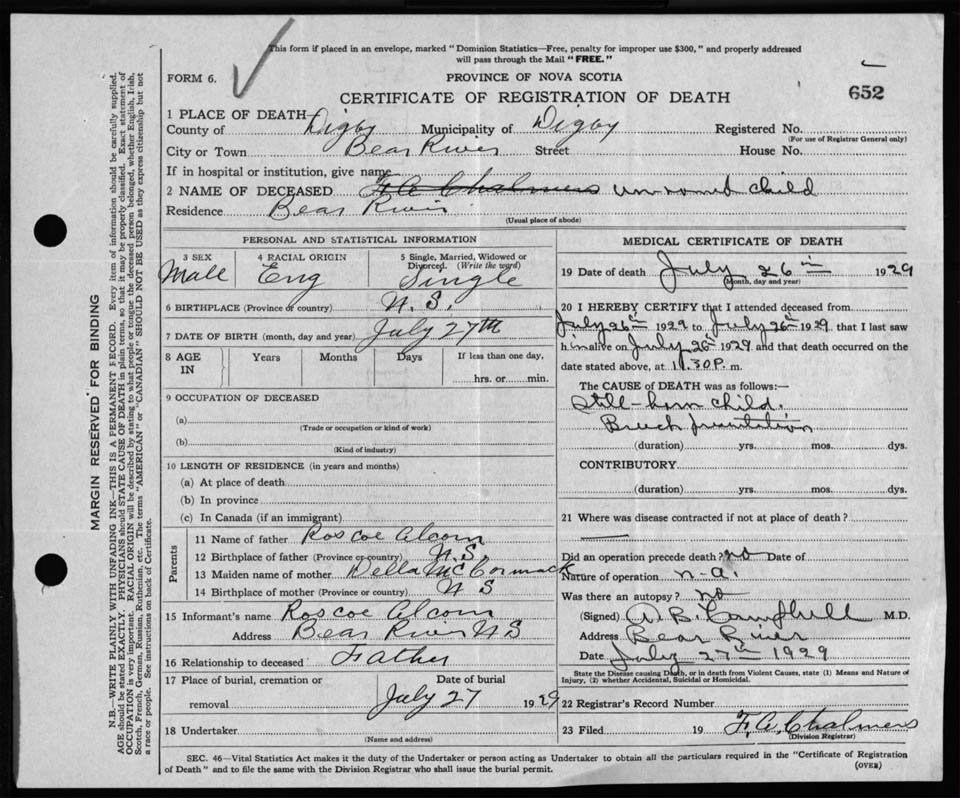 This form if placed in an envelope, marked "Dominion Statistics—Free, penalty for improper use $300," and properly addressed
will pass through the Mail "FREE."
FORM 6.
PROVINCE OF NOVA SCOTIA
CERTIFICATE OF REGISTRATION OF DEATH
652
1 PLACE OF DEATH
County of Digby Municipality of Digby Registered No.
(For use of Registrar General only)
City or Town Bear River Street House No.
If in hospital or institution, give name
2 NAME OF DECEASED F. A. Chalmers un named child
Residence Bear River
(Usual place of abode)
PERSONAL AND STATISTICAL INFORMATION
3 SEX 4 RACIAL ORIGIN 5 Single, Married, Widowed or Divorced. (Write the word)
Male Eng Single
6 BIRTHPLACE (Province or country) N. S.
7 DATE OF BIRTH (month, day and year) July 27th
8 AGE IN Years Months Days If less than one day,
hrs. or min.
9 OCCUPATION OF DECEASED
(a)
(Trade or occupation or kind of work)
(b)
(Kind of industry)
10 LENGTH OF RESIDENCE (in years and months)
(a) At place of death
(b) In province
(c) In Canada (if an immigrant)
Parents
11 Name of father Roscoe Alcorn
12 Birthplace of father (Province or country) N.S.
13 Maiden name of mother Della McCormack
14 Birthplace of mother (Province or country) N S
15 Informant's name Roscoe Alcorn
Address Bear River N S
16 Relationship to deceased Father
17 Place of burial, cremation or Date of burial
removal July 27 1929
18 Undertaker
(Name and address)
MEDICAL CERTIFICATE OF DEATH
19 Date of death July 26th 1929
(Month, day and year)
20 I HEREBY CERTIFY that I attended deceased from
July 26th 1929 to July 26th 1929, that I last saw
him alive on July 26th 1929 and that death occurred on the
date stated above, at 11.30 P. m.
The CAUSE OF DEATH was as follows:—
Still-born child.
Breech presentation
(duration) yrs. mos. dys.
CONTRIBUTORY
(duration) yrs. mos. dys.
21 Where was disease contracted if not at place of death?
Did an operation precede death? no Date of
Nature of operation n-a.
Was there an autopsy? no
(Signed) A. B. Campbell M.D.
Address Bear River
Date July 27th 1929
State the Disease causing Death, or in death from Violent Causes, state (1) Means and Nature of
Injury, (2) whether Accidental, Suicidal or Homicidal.
22 Registrar's Record Number
23 Filed 19 F. A. Chalmers
(Division Registrar)
SEC. 46—Vital Statistics Act makes it the duty of the Undertaker or person acting as Undertaker to obtain all the particulars required in the "Certificate of Registration
of Death" and to file the same with the Division Registrar who shall issue the burial permit.
(OVER)
MARGIN RESERVED FOR BINDING
N.B.—WRITE PLAINLY WITH UNFADING INK—THIS IS A PERMANENT RECORD. Every item of information should be carefully supplied.
AGE should be stated EXACTLY. PHYSICIANS should STATE CAUSE OF DEATH in plain terms, so that it may be properly classified. Exact statement of
OCCUPATION is very important. RACIAL ORIGIN will be described by stating to what people or tongue the deceased person belonged, whether English, Irish,
Scotch, French, German, Russian, Ruthenian, etc. The terms "AMERICAN" or "CANADIAN" SHOULD NOT BE USED as they express citizenship but not
a race or people. See instructions on back of Certificate.